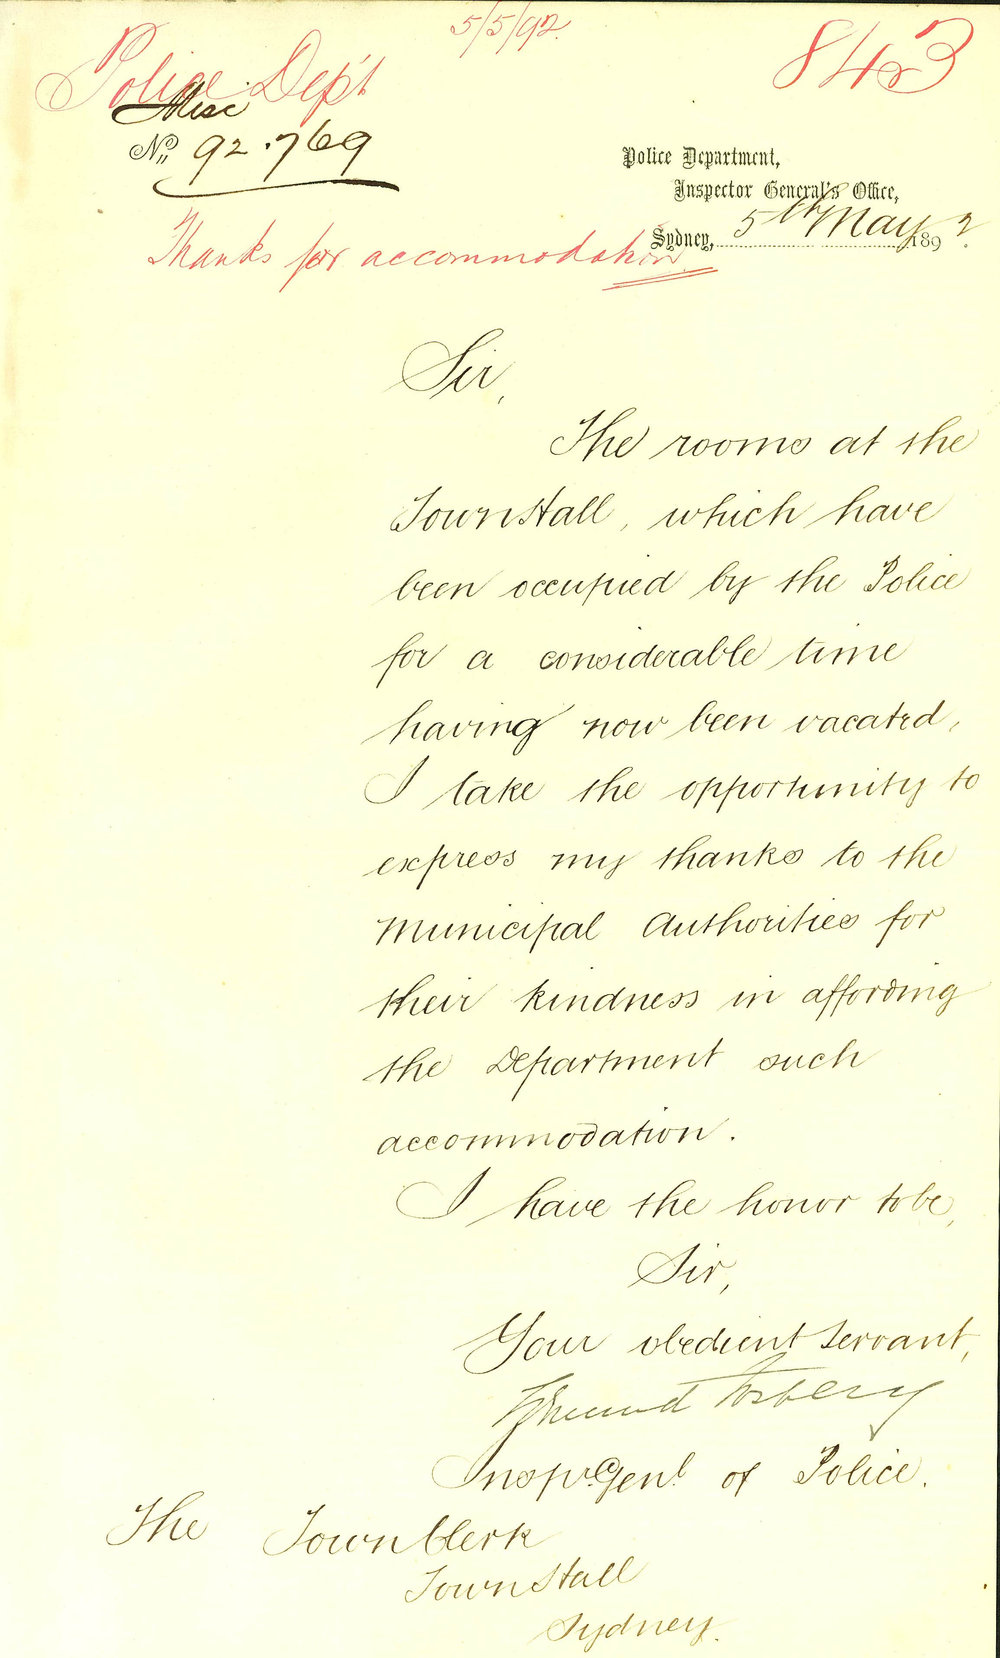 5/5/92.
843
Police Dep't
Misc
No. 92.769
Police Department,
Inspector General's Office,
Sydney, 5th May 1892.
Thanks for accommodation
Sir,
The rooms at the
Town Hall, which have
been occupied by the Police
for a considerable time
having now been vacated,
I take the opportunity to
express my thanks to the
Municipal Authorities for
their kindness in affording
the Department such
accommodation.
I have the honor to be,
Sir,
Your obedient servant,
Edmund Fosbery
Inspr. Genl. of Police.
The Town Clerk
Town Hall
Sydney.